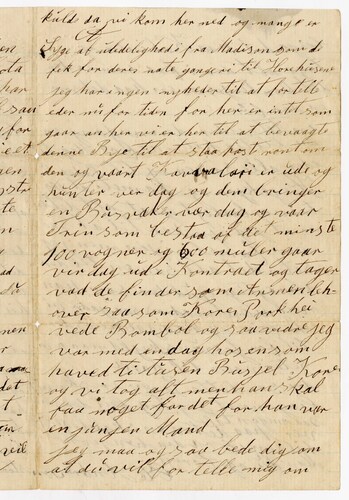 kuld da vi kom her ned og mange er
Syge af uddelighed i fra Madison som de
fek for deres nate gange vi til Horehusene
jeg har ingen nyheder til at fortelle
eder nu for tiden for her er intet som
gaar an her vi er her til at bevaagte
denne By til at staa Post rontom
den og vaart Kavalari er ude og
hunter ver dag og dem bringer
en Busvaker ver dag og vaar
Trin som bestaa af det minste
100 vogner og 600 muler gaar
ver dag ud i Kontract og tager
vad de finder som Armeri beh
over saa som Koren Pork hei
vede Bombol og saa vidre jeg
var med en dag hos en som
haved ti tusen Busjel Koren
og vi tog alt men han skal
faa noget for det for han var
en junjen Mand
jeg maa og saa bede dig om
at du vil for telle mig om